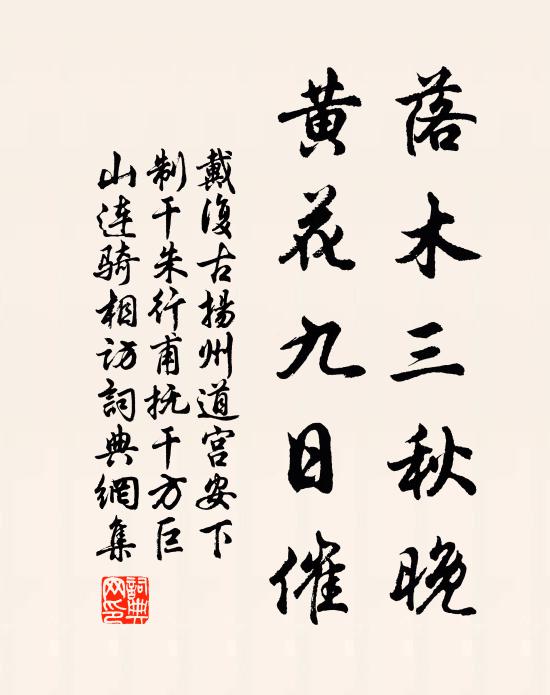 落木三秋晚
黄花九日催
戴復古揚州道宮安下
制干朱行甫抚干方巨
山连骑相访詞典網集
詞典
网印